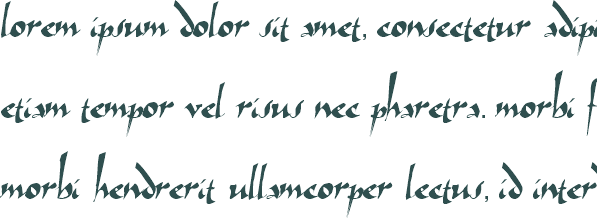 lorem ipsum dolor sit amet, consectetur adipi
etiam tempor vel risus nec pharetra. morbi f
morbi hendrerit ullamcorper lectus, id inter